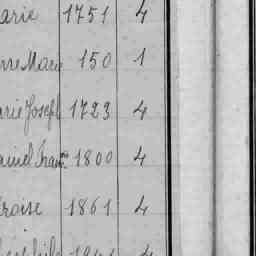 arie 1751 4
rre Marie 150 1
arie Joseph 1723 4
aniel Fran 1800 4
roise 1861 4
4